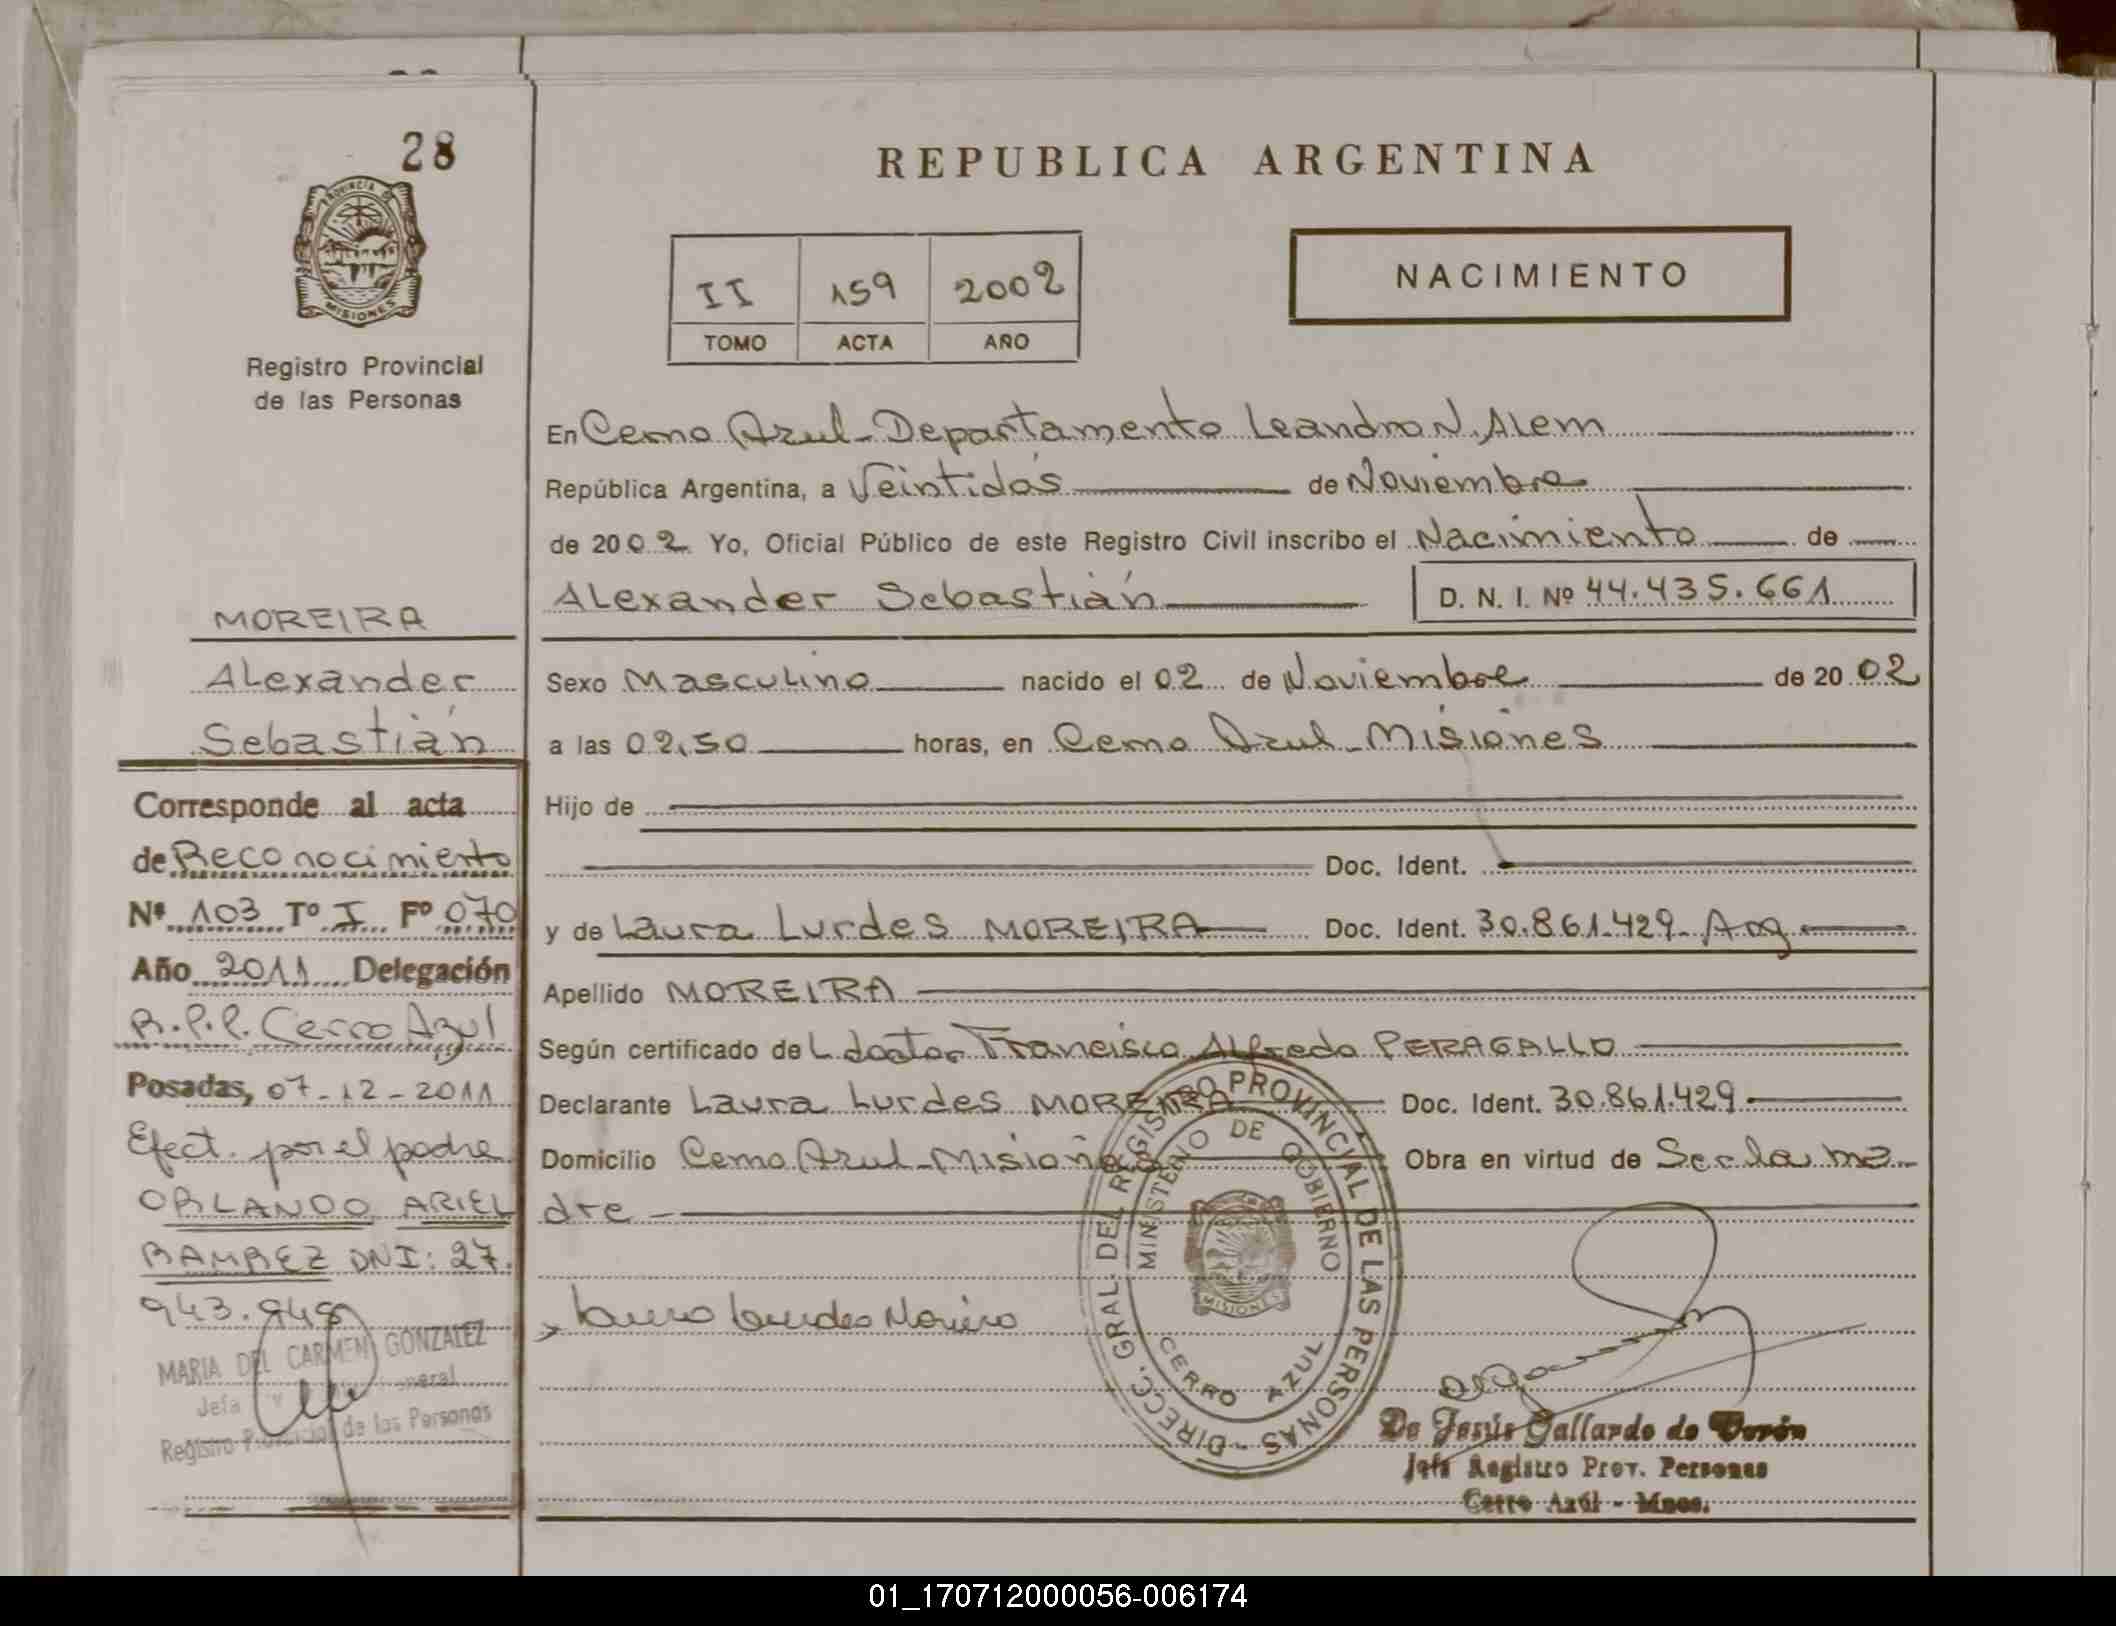 28
PROVINCIA DE
MISIONES
Registro Provincial
de las Personas
MOREIRA
Alexander
Sebastián
Corresponde al acta
de Reconocimiento
Nº 103 Tº I Fº 070
Año 2011 Delegación
R.P.P. Cerro Azul
Posadas, 07-12-2011
Efect. por el padre
ORLANDO ARIEL
RAMIREZ DNI: 27.
943.948
MARIA DEL CARMEN GONZALEZ
Jefa
Registro Provincial de las Personas
REPUBLICA ARGENTINA
II 159 2002
TOMO ACTA AÑO
NACIMIENTO
En Cerro Azul - Departamento Leandro N. Alem
República Argentina, a Veintidós de Noviembre
de 2002 Yo, Oficial Público de este Registro Civil inscribo el Nacimiento de
Alexander Sebastián D. N. I. Nº 44.435.661
Sexo Masculino nacido el 02 de Noviembre de 20 02
a las 02,50 horas, en Cerro Azul - Misiones
Hijo de
Doc. Ident.
y de Laura Lurdes MOREIRA Doc. Ident. 30.861.429 - Arg
Apellido MOREIRA
Según certificado de L doctor Francisco Alfredo PERAGALLO
Declarante Laura Lurdes MOREIRA Doc. Ident. 30.861.429
Domicilio Cerro Azul - Misiones Obra en virtud de Ser la ma-
dre
DIRECC. GRAL. DEL REGISTRO PROVINCIAL DE LAS PERSONAS -
MINISTERIO DE GOBIERNO
MISIONES
CERRO AZUL
De Jesús Gallardo de
Jefa Registro Prov. Personas
Cerro Azúl - Mnes.
01_170712000056-006174